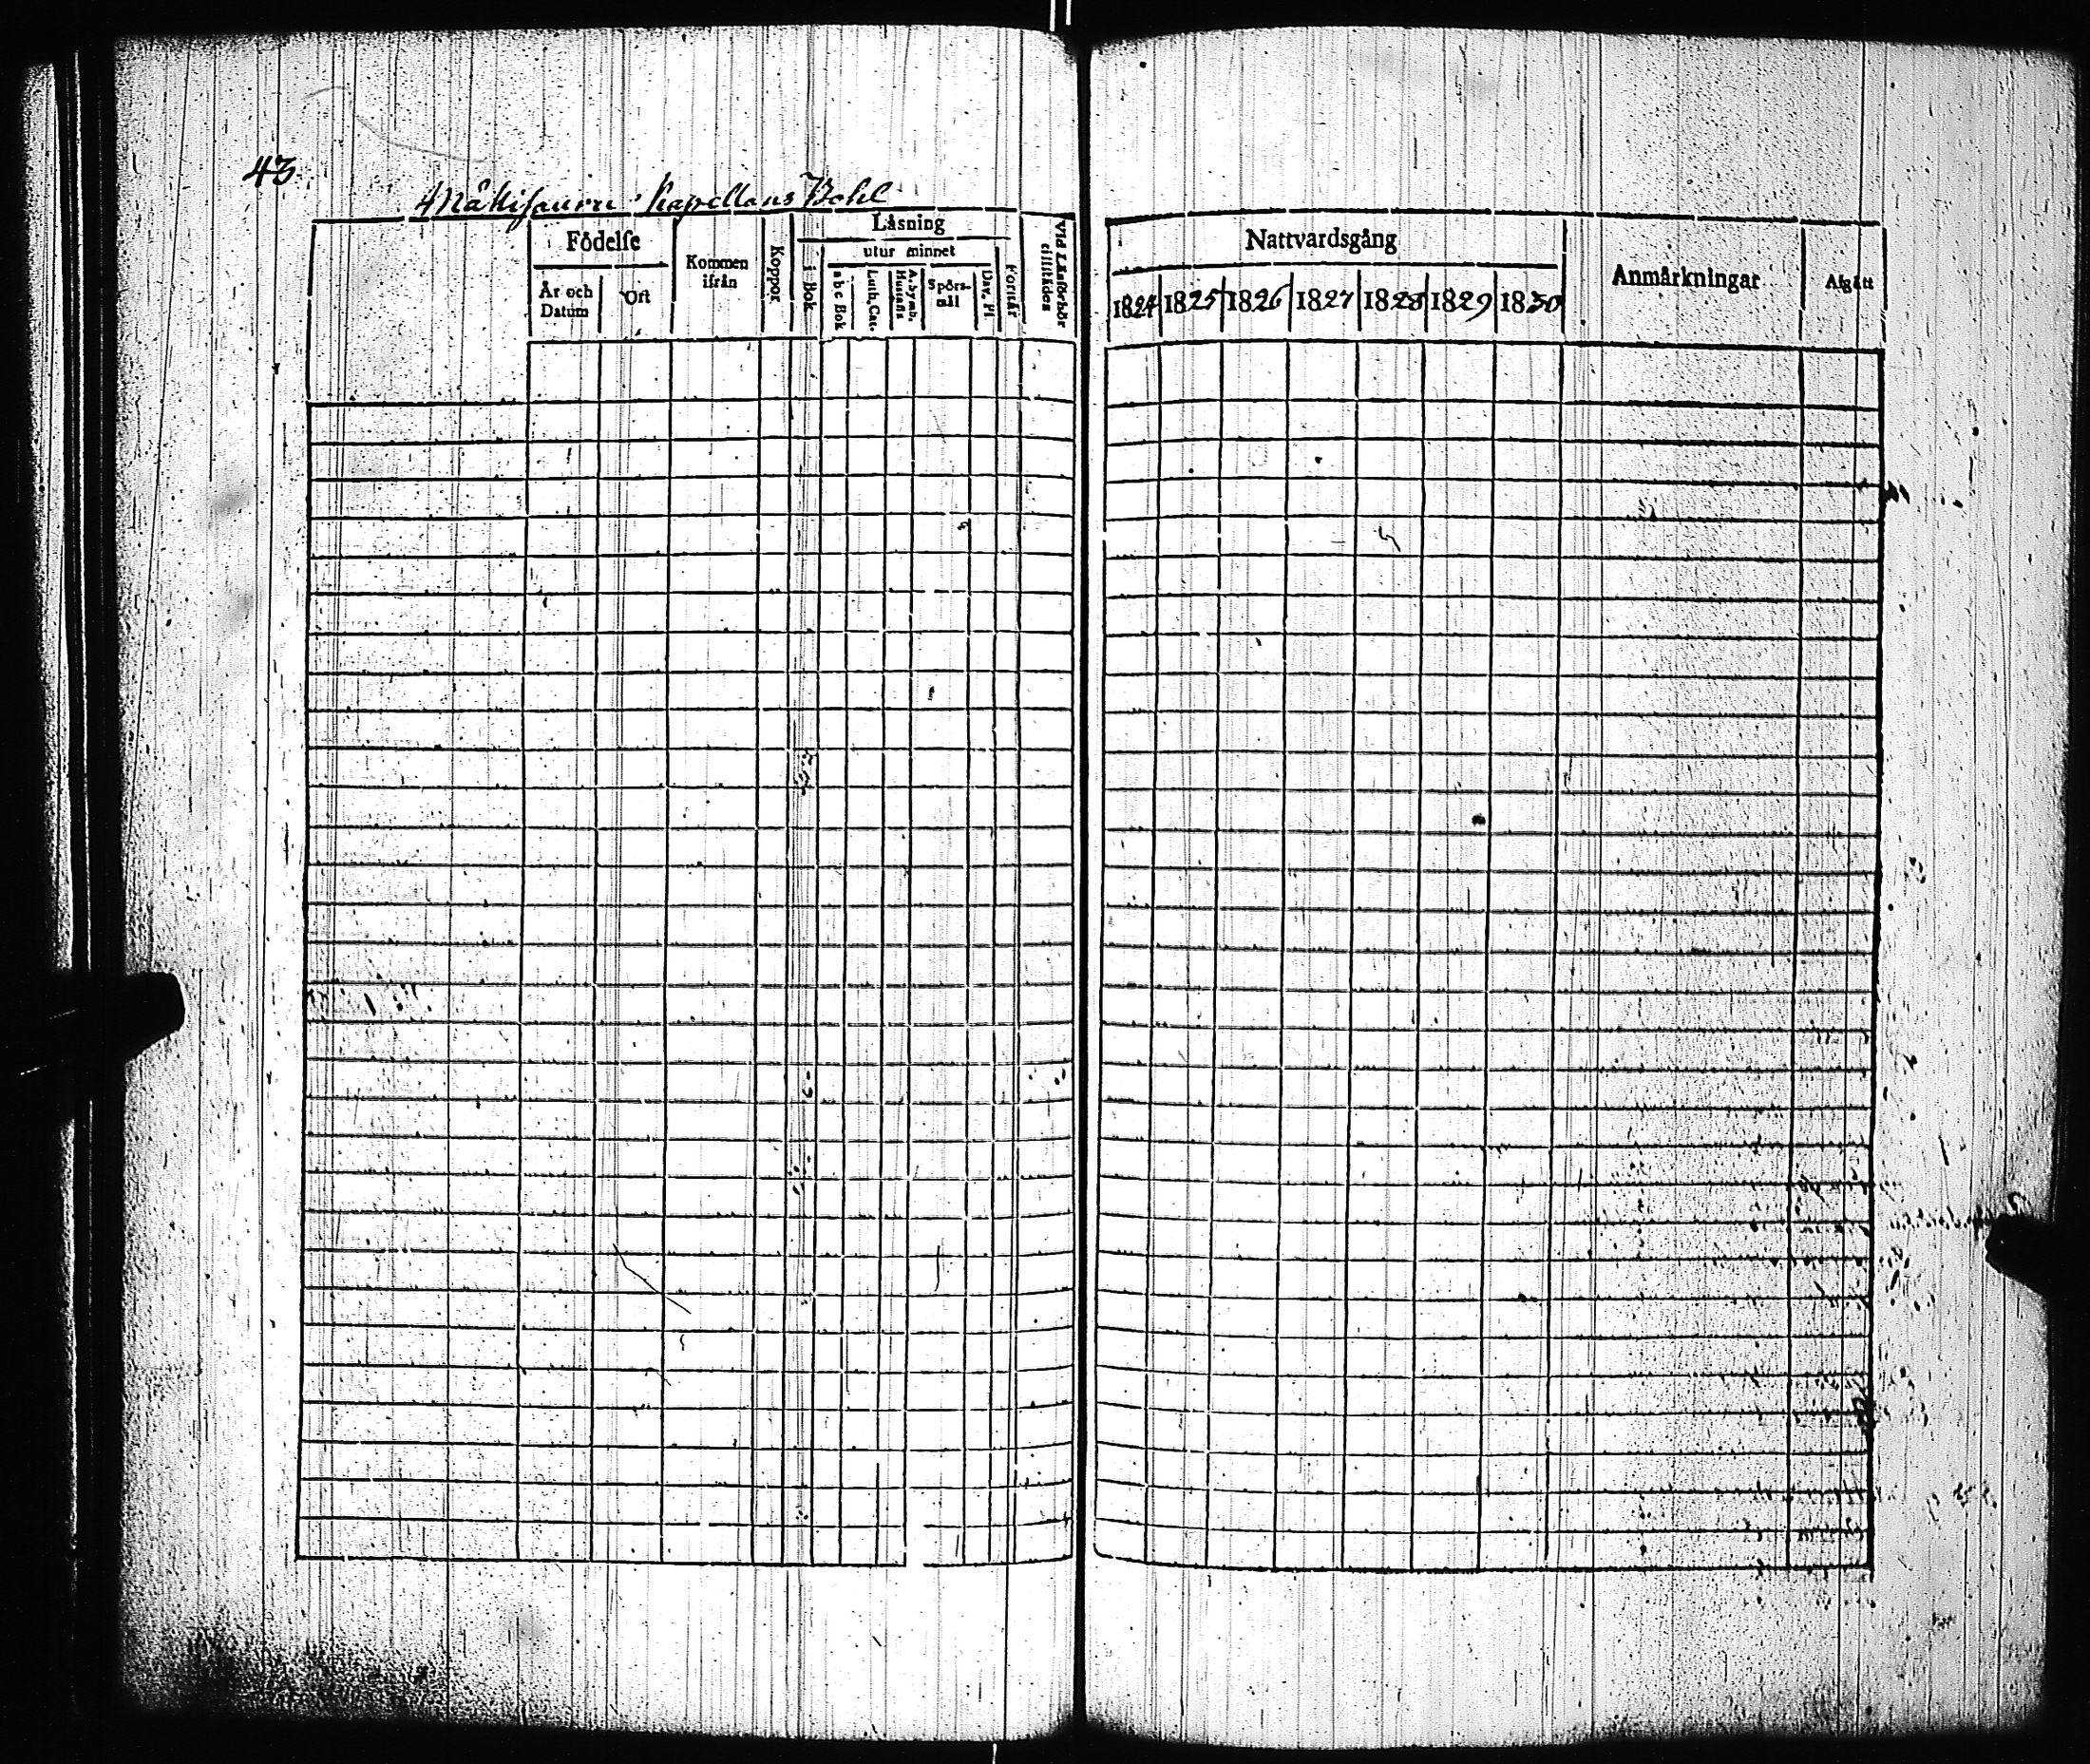 43.
Kapellans Bohl
Födelse
År och Datum
Ort
Kommen ifrån
Koppor
Läsning
i Bok
utur minnet
a b c Bok
Luth. Cat.
A. Symb. Hustafla
Spörsmål
Dav. Ps
Förstår
Vid Läsförhör tillstädes
Nattvardsgång
1824 1825 1826 1827 1828 1829 1830
Anmärkningar
Afgått